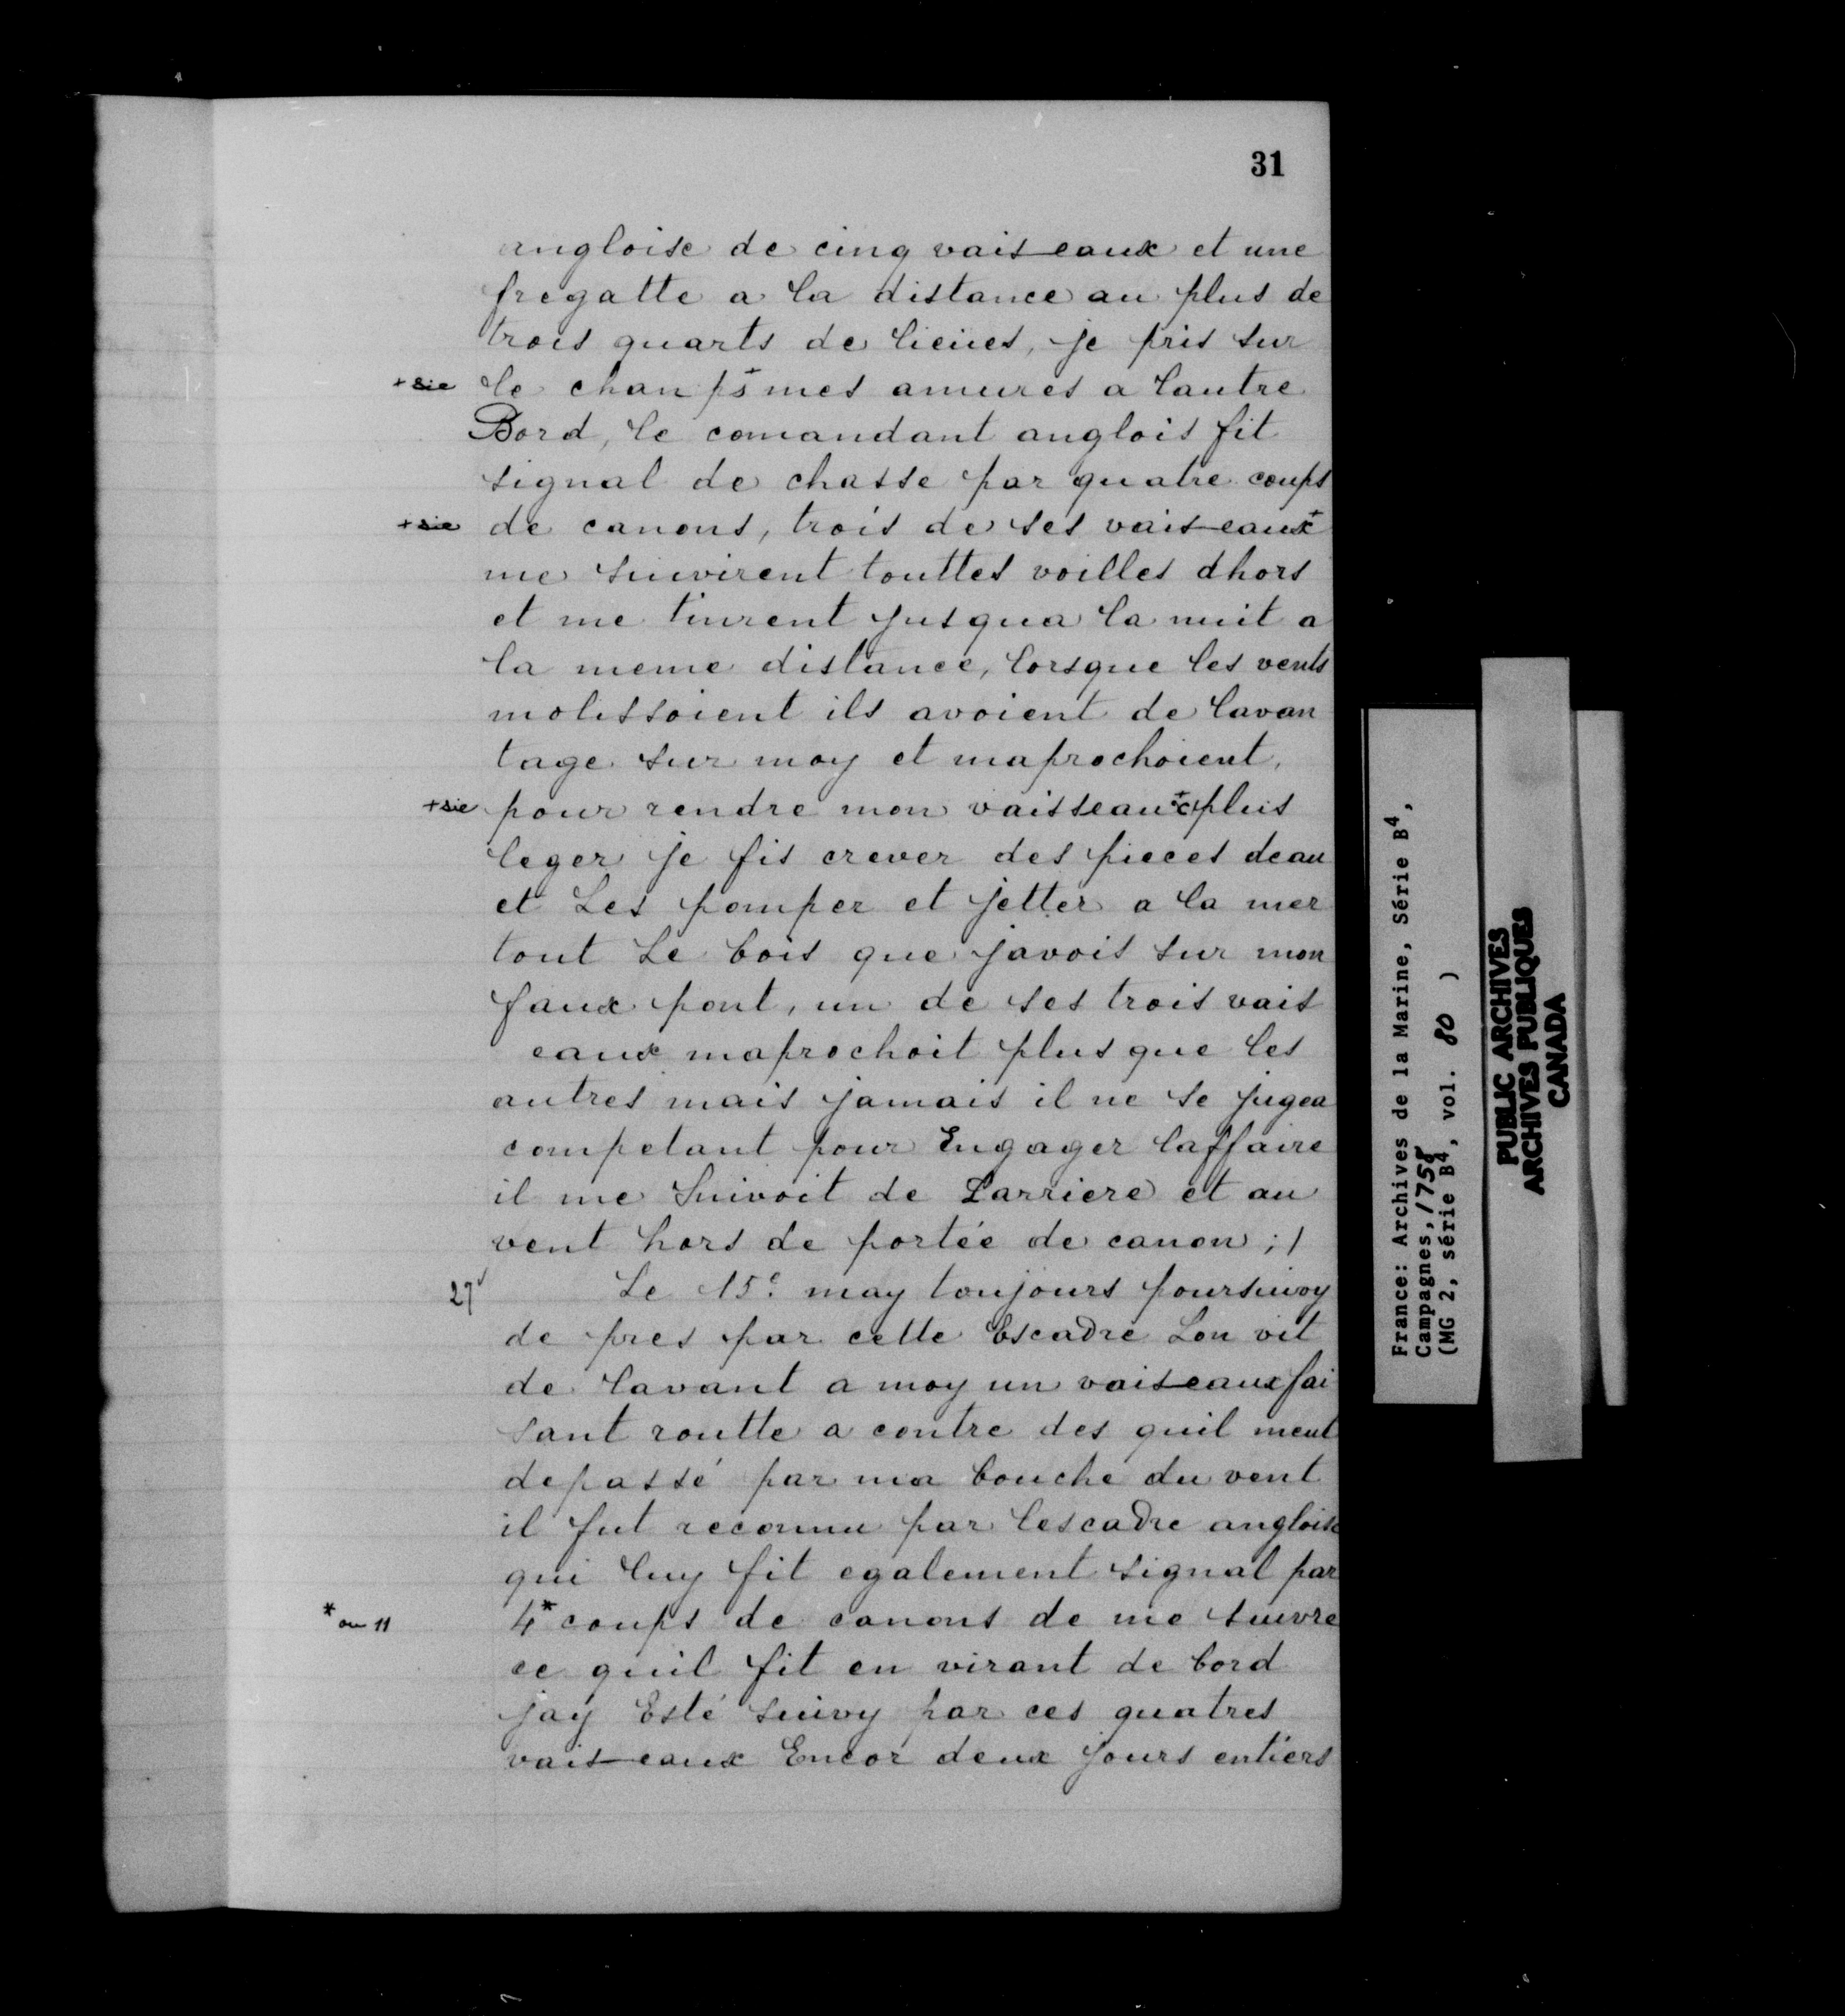 31
angloise de cinq vaiseaux et une
fregatte a la distance au plus de
trois quarts de lieües, je pris sur
+ sic le champs+ mes amures a lautre
Bord, le comandant anglois fit
signal de chasse par quatre coups
+ sic de canons, trois de ses vaiseaux+
me suivirent touttes voilles dhors
et me tinrent jusqua la nuit a
la meme distance, lorsque les vents
molissoient ils avoient de lavan
tage sur moy et maprochoient,
+ sic pour rendre mon vaisseaux+ plus
leger je fis crever des pieces deau
et Les pomper et jetter a la mer
tout Le bois que javois sur mon
faux pont, un de ses trois vais
eaux maprochoit plus que les
autres mais jamais il ne se jugea
competant pour Engager laffaire
il me Suivoit de Larriere et au
vent hors de portée de canon ;/
27v Le 15e may toujours poursuivy
de pres par cette Escadre Lon vit
de lavant a moy un vaiseaux fai
sant routte a contre des quil meut
depassé par ma bouche du vent
il fut reconnu par lescadre angloise
qui luy fit egalement signal par
* ou 11 4* coups de canons de me suivre
ce quil fit en virant de bord
jay Esté suivy par ces quatres
vaiseaux Encor deux jours entiers
France: Archives de la Marine, Série B4,
Campagnes, 1758
(MG 2, série B4, vol. 80 )
PUBLIC ARCHIVES
ARCHIVES PUBLIQUES
CANADA